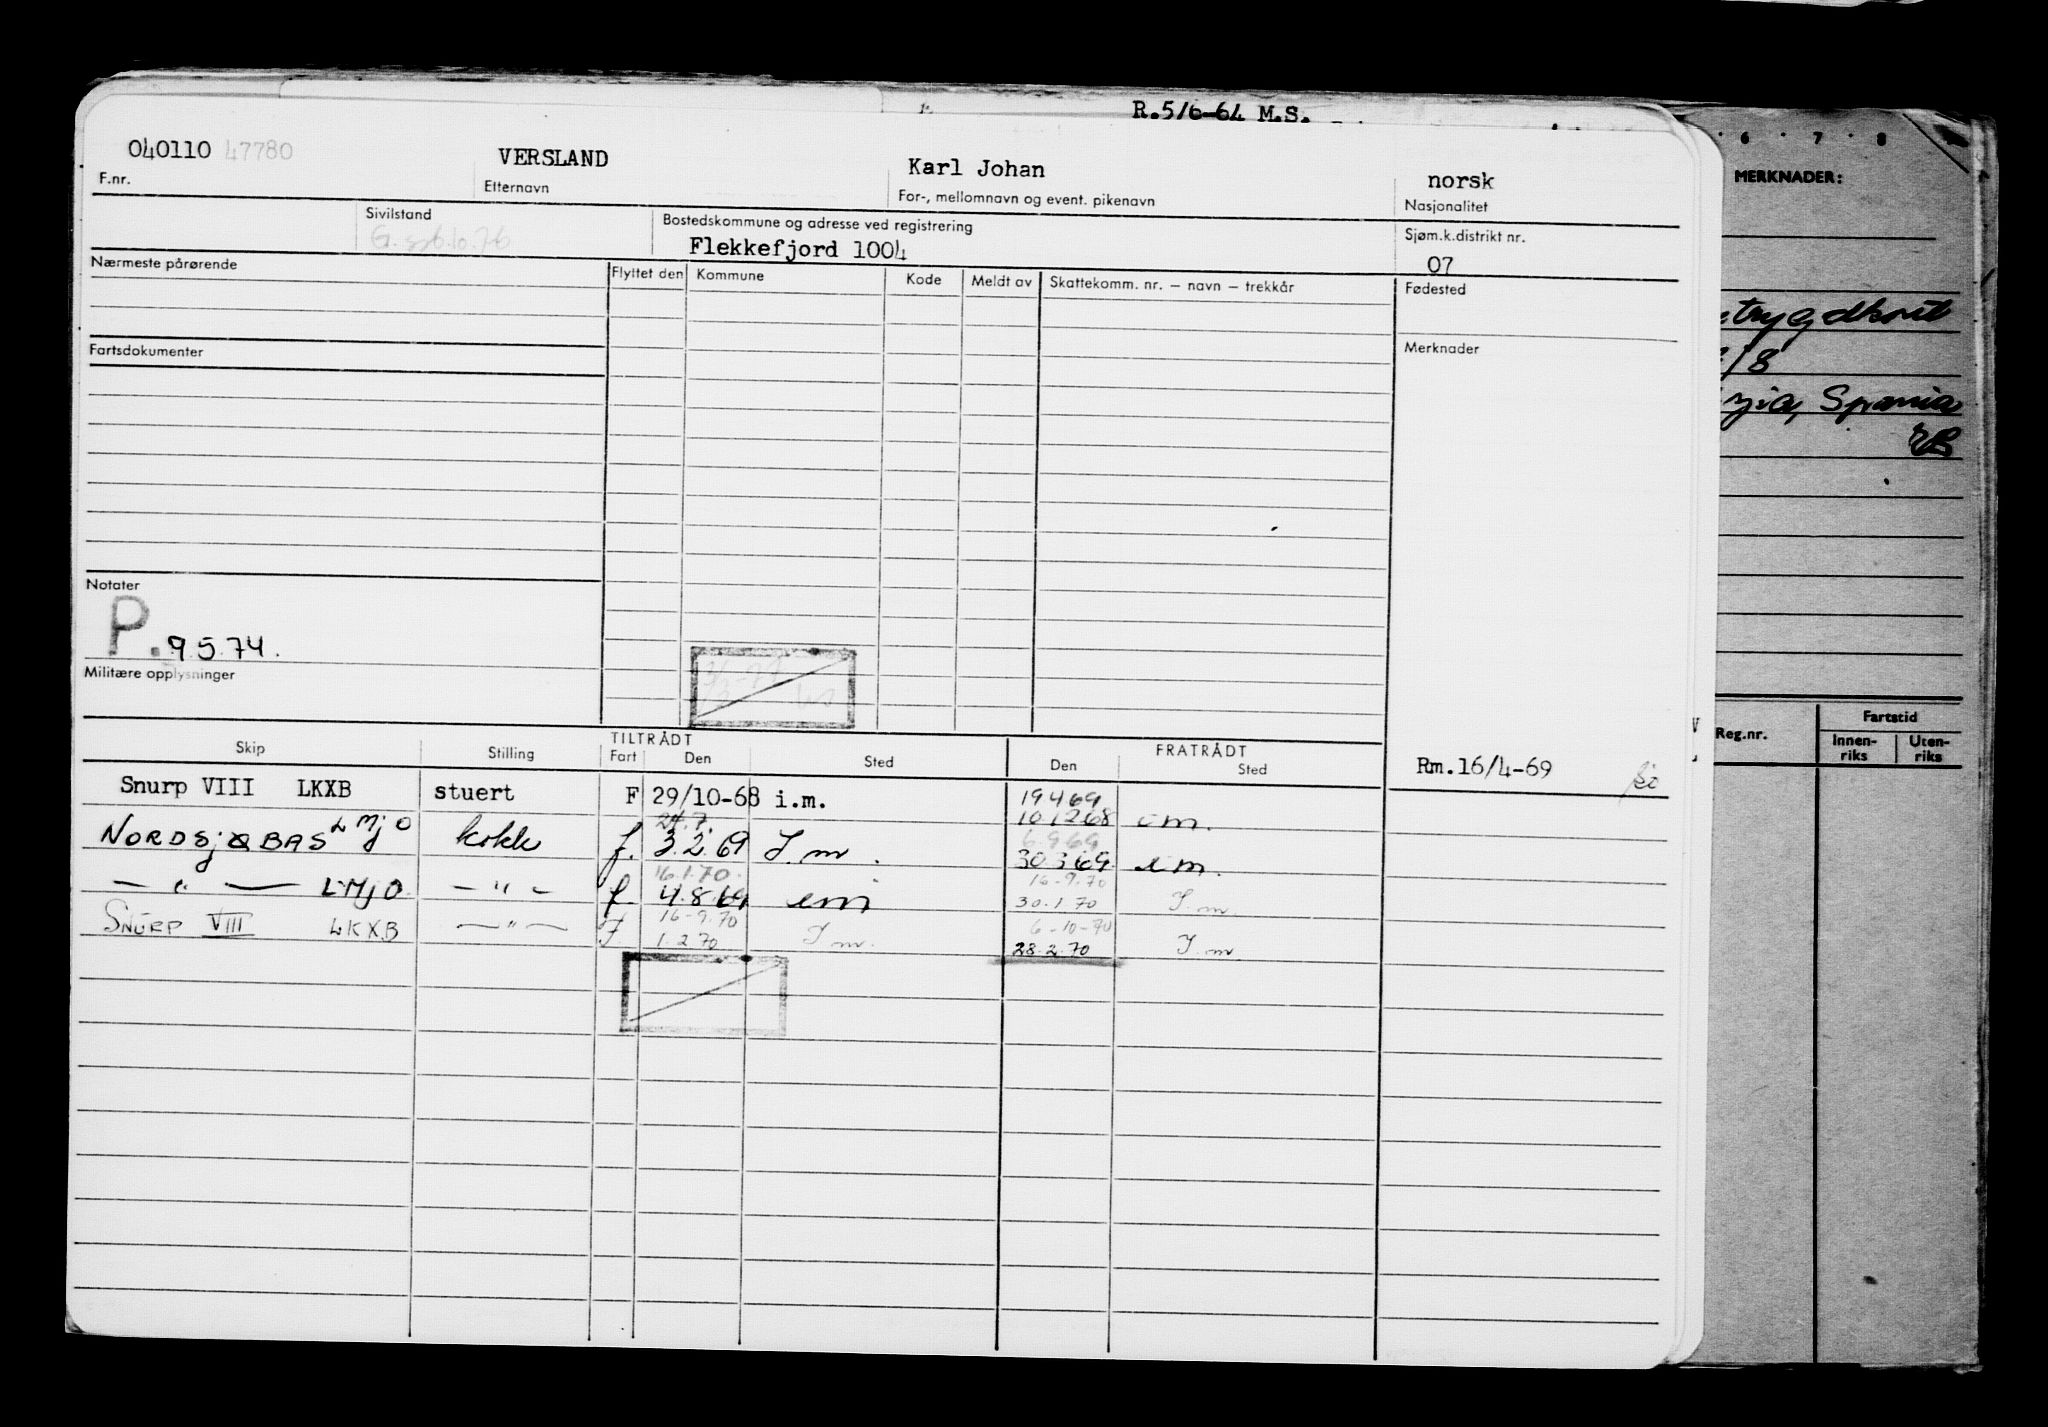 R.5/6-64 M.S.
040110 47780 VERSLAND Karl Johan norsk
F.nr. Etternavn For-, mellomnavn og event. pikenavn Nasjonalitet
Sivilstand Bostedskommune og adresse ved registrering Sjøm.k.distrikt nr.
Flekkefjord 1004 07
Nærmeste pårørende Flyttet den Kommune Kode Meldt av Skattekomm. nr. – navn – trekkår Fødested
Fartsdokumenter Merknader
Notater
P. 9.5.74.
Militære opplysninger
Skip Stilling TILTRÅDT Fart Den Sted FRATRÅDT Den Sted
Rm.16/4-69
19 4 69
Snurp VIII LKXB stuert F 29/10-68 i.m. 10 12 68 i m.
24.7. 6.9.69
NORDSJØBAS LMJO kokk f. 3.2.69 I. m. 30.3.69. i m.
16.1.70. 16-9.70
— " — LMJO — " — f 4.8.69 im 30.1.70 I. m.
16-9.70 6-10-70
SNURP VIII LKXB — " — F 1.2.70 I m. 28.2.70 I. m.
6 7 8
MERKNADER:
trygdkort
/8
Spania
Reg.nr. Fartstid
Innenriks Utenriks